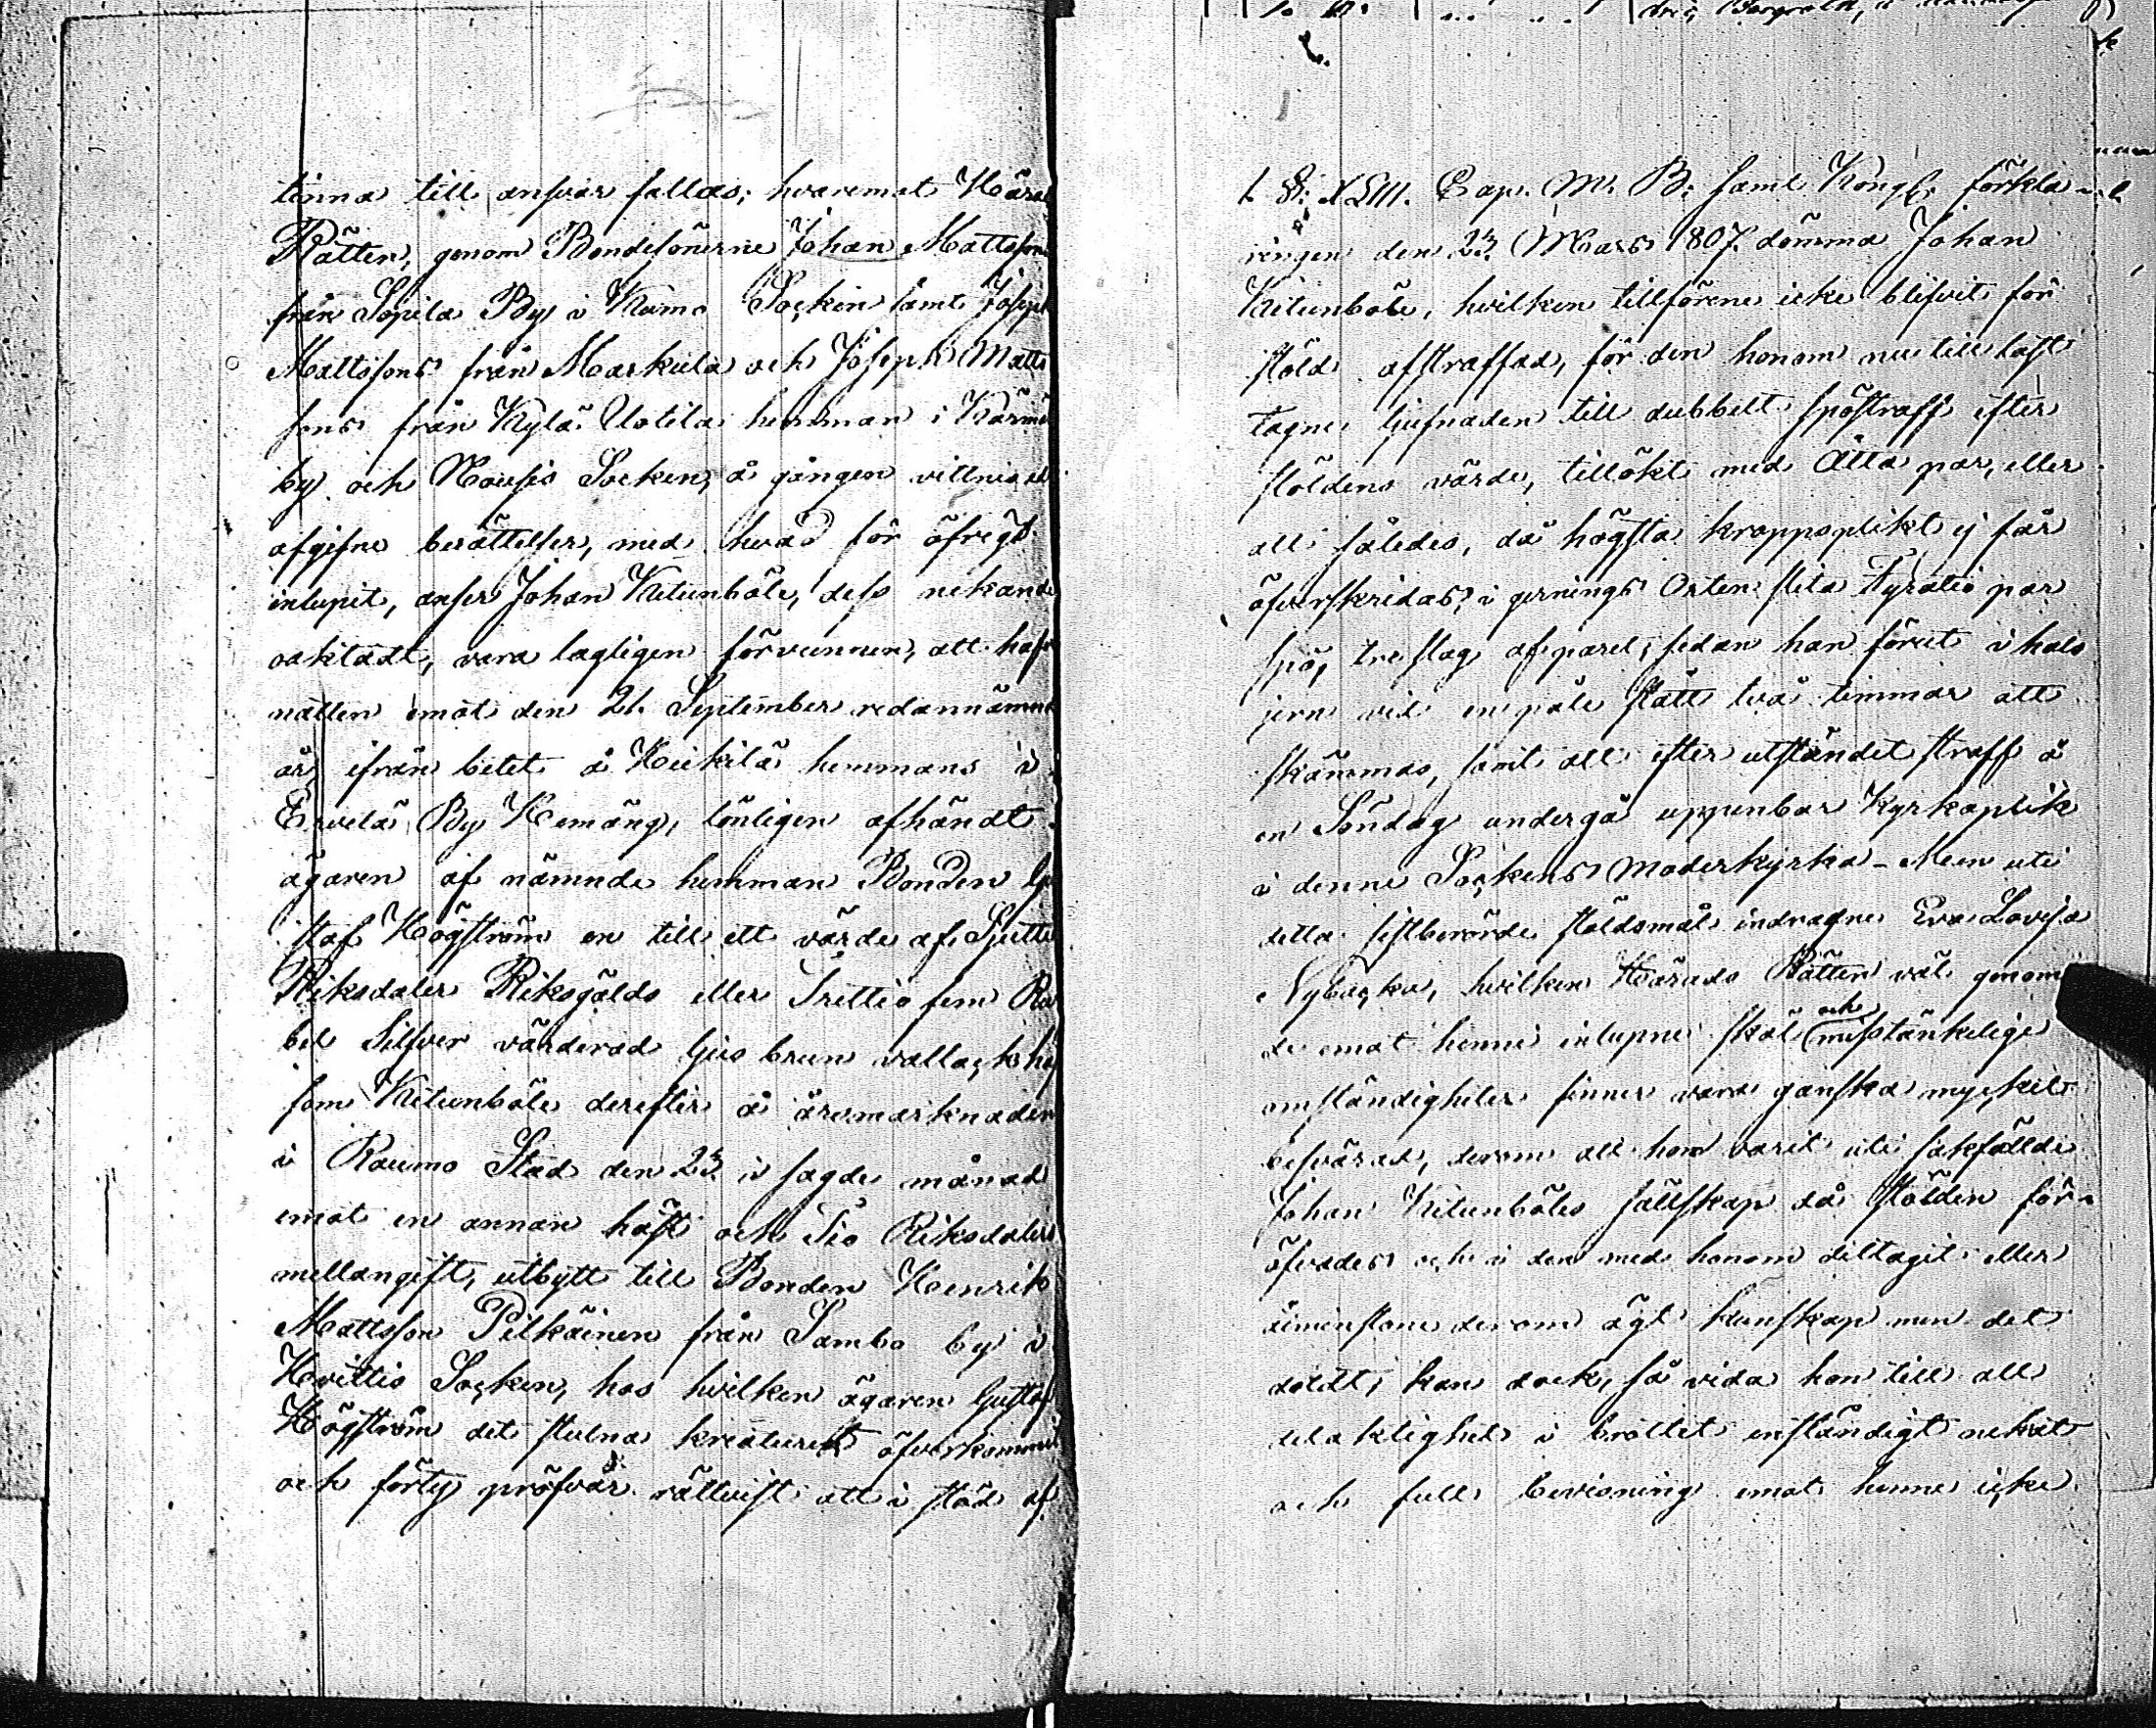 tinna till ansvar fällas; hvaremot Härad
Rätten, genom Bondesönerne Johan Mattssons
från Sopila By i Kumo Sockin samt Joseph
Mattssons från Markula och Joseph Matts
sons från Kylä Uotila hemman i
by och Nousis Socken, å gången vittnes ed
afgifne berättelser, med hvad för öfrigt
inlupit, anser Johan Ketunböle, dess nekande
oaktadt, vara lagligen förvunnen, att hafva
natten emot den 21. September redannämnt
år, ifrån betet å Heikilä hemmans i
Ervelä By Hemäng, lönligen afhändt
ägaren af nämnde hemman Bonden Gu
staf Högström en till ett värde af Sjutti
Riksdaler Riksgälds eller Trettio fem Ru
bel Silfver värderad ljus brun vallack häst
som Ketunböle derefter å årsmarknaden
i Raumo Stad den 23 i sagde månad
emot en annan häst och Tio Riksdalers
mellangift, utbytt till Bonden Henrik
Mattsson Pitkäinen från Sambo by i
Hvittis Socken, hos hvilken ägaren Gustaf
Högström det stulna kreaturet öfverkommit
och förty pröfvar rättvist att i stöd af
1. §. XLIII. Cap. M. B. samt Kongl. förkla-
ringen den 23. Mars 1807. dömma Johan
Ketunböle, hvilken tillförene icke blifvit för
stöld afstraffad, för den honom nu till last
tagne tjufnaden till dubbelt spöstraff efter
stöldens värde, tillökt med Åtta par, eller
att således, då högsta kroppsplikt ej får
öfverskridas, i gernings Orten slita Fyratio par
spö, tre slag af paret, sedan han förut i hals
jern vid en påle stått två timmar att
skämmas, samt att efter utståndet straff å
en Söndag undergå uppenbar Kyrkoplikt
i denne Sockens Moderkyrka - Men uti
detta sistberörde stöldsmål indragne Eva Lovisa
Nybacka, hvilken Härads Rätten väl genom
de emot henne inlupne skäl och misstänkelige
omständigheter finner vara ganska mycket
besvärad, derom att hon varit uti sakfällde
Johan Ketunböles sällskap då stölden för-
öfvades och i den med honom deltagit eller
åtminstone derom ägt kunskap men det
doldt, kan dock, så vida hon till all
delaktighet i brottet enständigt nekat
och full bevisning emot henne icke